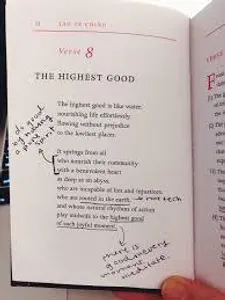 Verse 8
THE HIGHEST GOOD
The highest good is like water,
nourishing life effortlessly
flowing without prejudice
to the lowliest places.
It springs from all
who nourish their community
with a benevolent heart
as deep as an abyss,
who are incapable of lies and injustices,
who are rooted in the earth,
root tech
and whose natural rhythms of action
play midwife to the highest good
of each joyful moment.
there is
good in every
moment.
meditate.